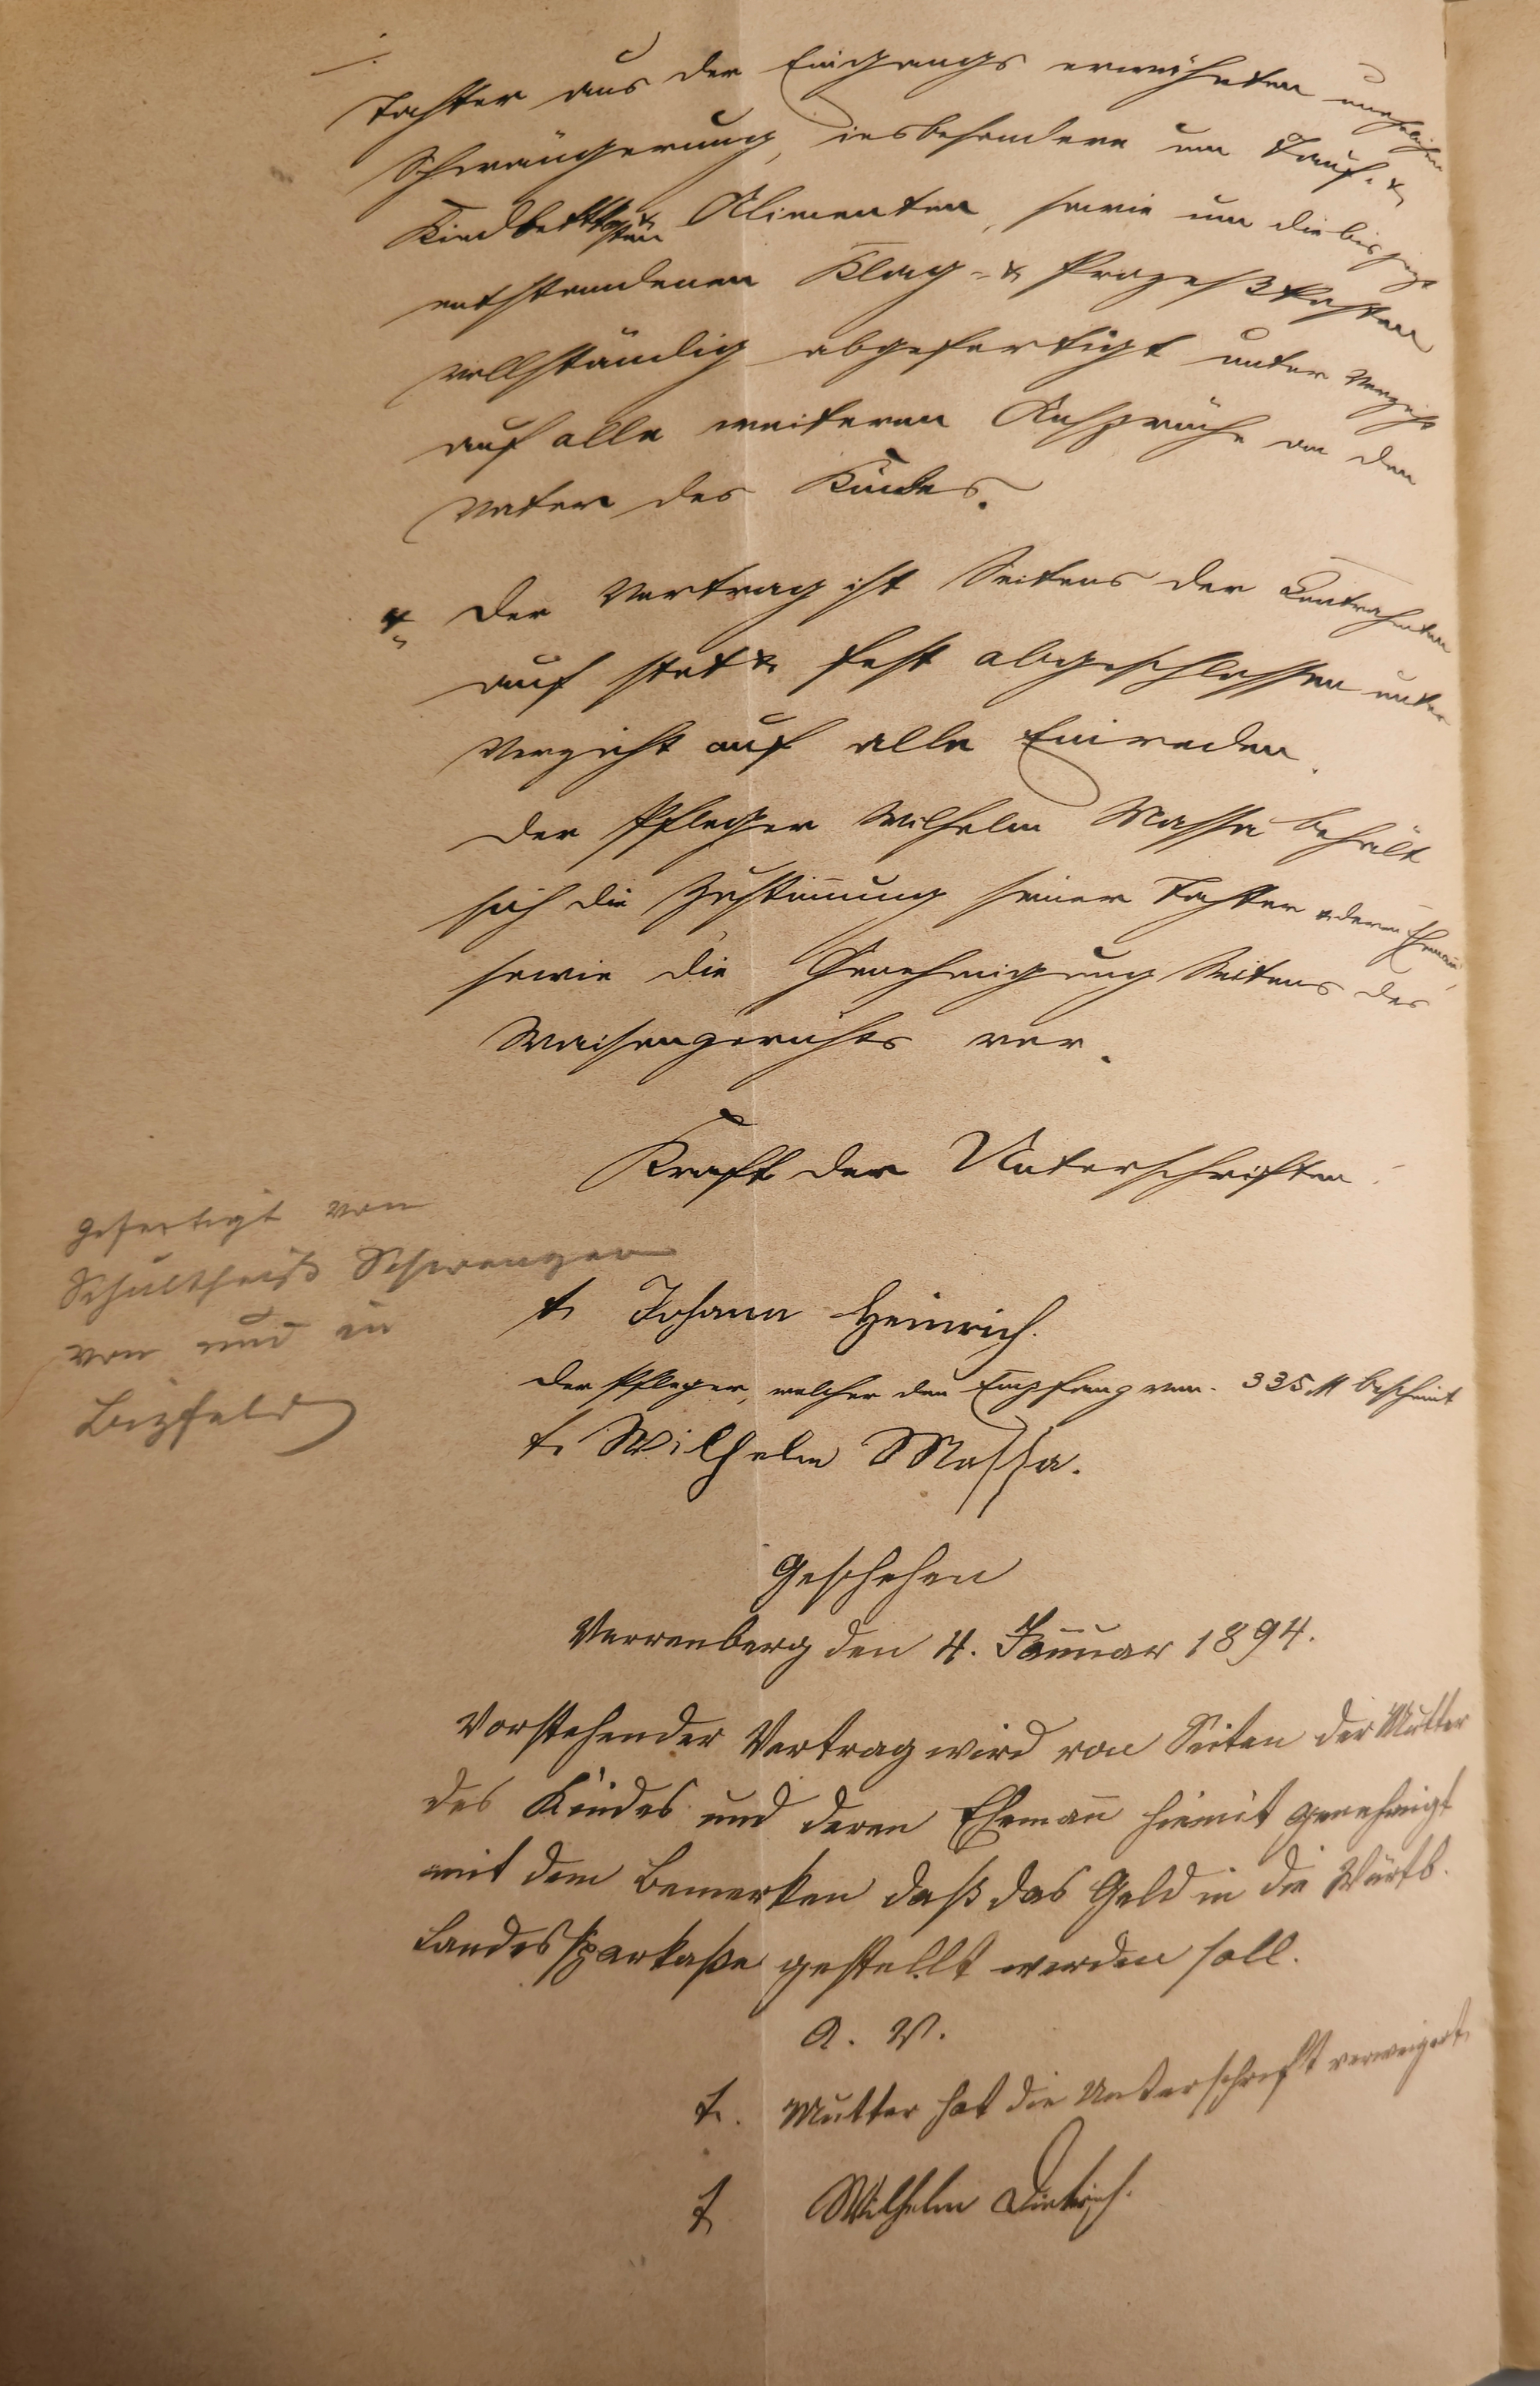 Tochter aus der Eingangs erwähnten unehelichen
Schwängerung, insbesondere um Tauf- &
Kindbettkosten & Alimenten, sowie um die bis jezt
entstandenen Klag- & Prozeßkosten
vollständig abgefertigt unter Verzicht
auf alle weiteren Ansprüche an den
Vater des Kindes.
4 Der Vertrag ist Seitens der Contrahenten
auf stet & fest abgeschlossen unter
Verzicht auf alle Einreden.
Der Pfleger Wilhelm Massa behält
sich die Zustimmung seiner Tochter & deren Ehemann,
sowie die Genehmigung Seitens des
Waisengerichts vor.
Kraft der Unterschriften:
gefertigt von
Schultheiß Schwenzer
von und in
Bizfeld
t. Johann Heinrich.
Der Pfleger, welcher den Empfang von 335 M bescheint
t. Wilhelm Massa.
Geschehen
Verrenberg den 4. Januar 1894.
Vorstehender Vertrag wird von Seiten der Mutter
des Kindes und deren Ehemann hiemit genehmigt
mit dem Bemerken daß das Geld in die Württb.
Landessparkaße gestellt werden soll.
A. V.
t. Mutter hat die Unterschrift verweigert.
t Wilhelm Dietrich.